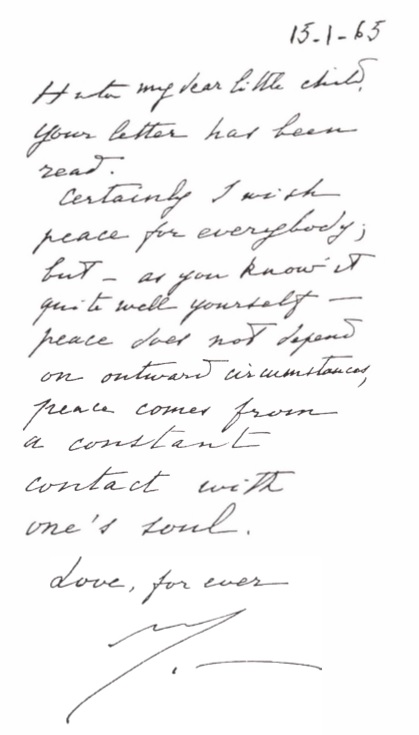 15-1-65
Huta my dear little child,
your letter has been
read.
Certainly I wish
peace for everybody;
but – as you know it
quite well yourself –
peace does not depend
on outward circumstances,
peace comes from
a constant
contact with
one's soul.
Love, for ever